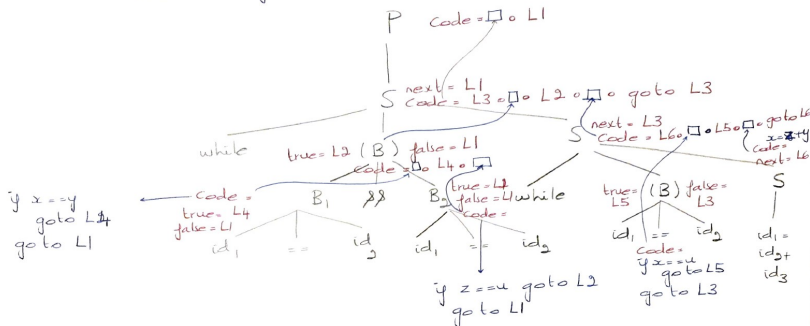 P Code = □ • L1
S next = L1
Code = L3 • □ • L2 • □ • goto L3
while
true = L2 (B) false = L1
Code = □ • L4 • □
S next = L3
Code = L6 • □ • L5 • □ • goto L6
x = z+y
Code =
next = L6
S
if x == y
goto L4
goto L1
Code =
true = L4
false = L1
B1 && B2
true = L2
false = L1
Code =
while
true = L5 (B) false = L3
id1 == id2
id1 == id2
id1 == id2
id1 =
id2 +
id3
Code =
if x == u
goto L5
goto L3
if z == u goto L2
goto L1